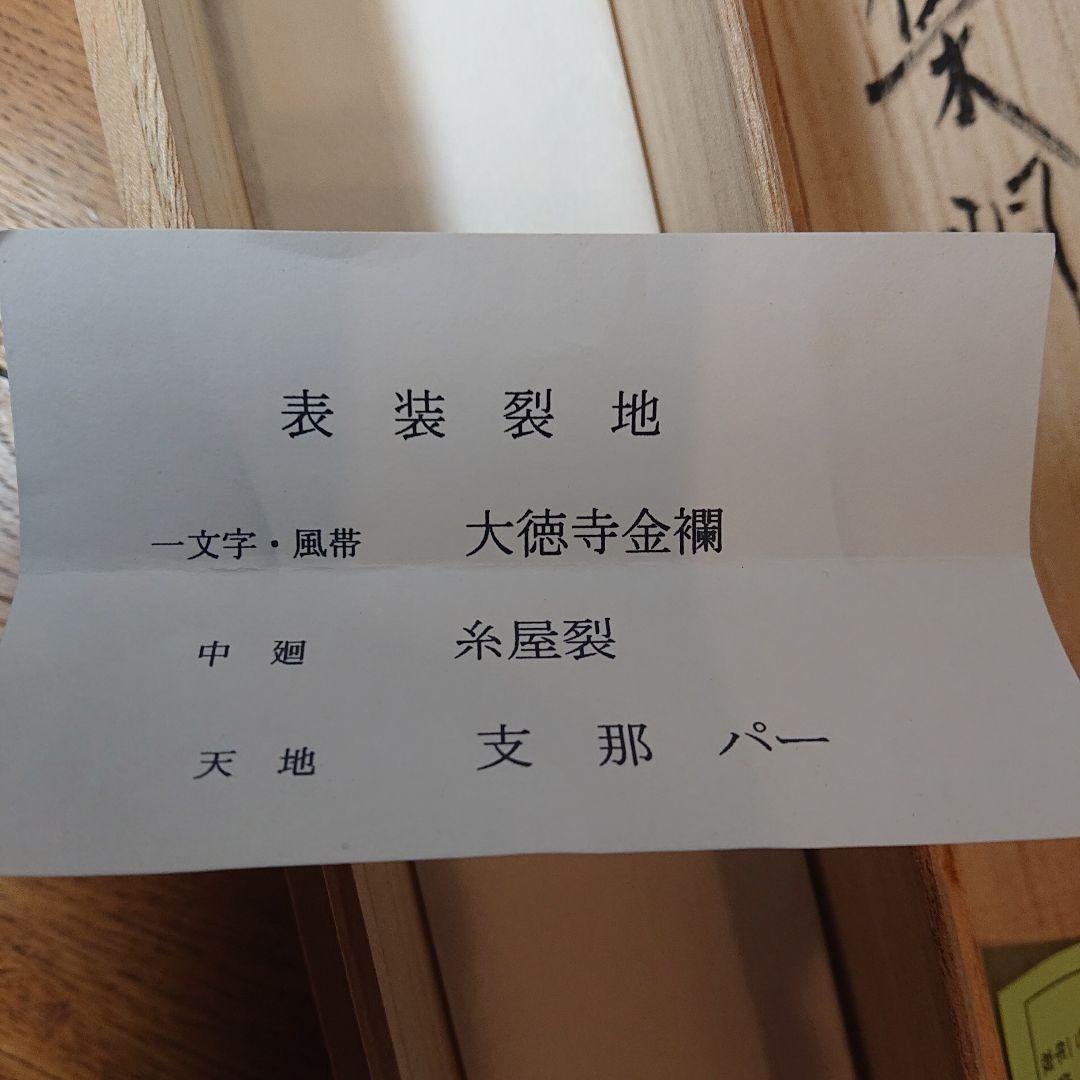 表装裂地
一文字・風帯 大徳寺金襴
中廻 糸屋裂
天地 支那パー